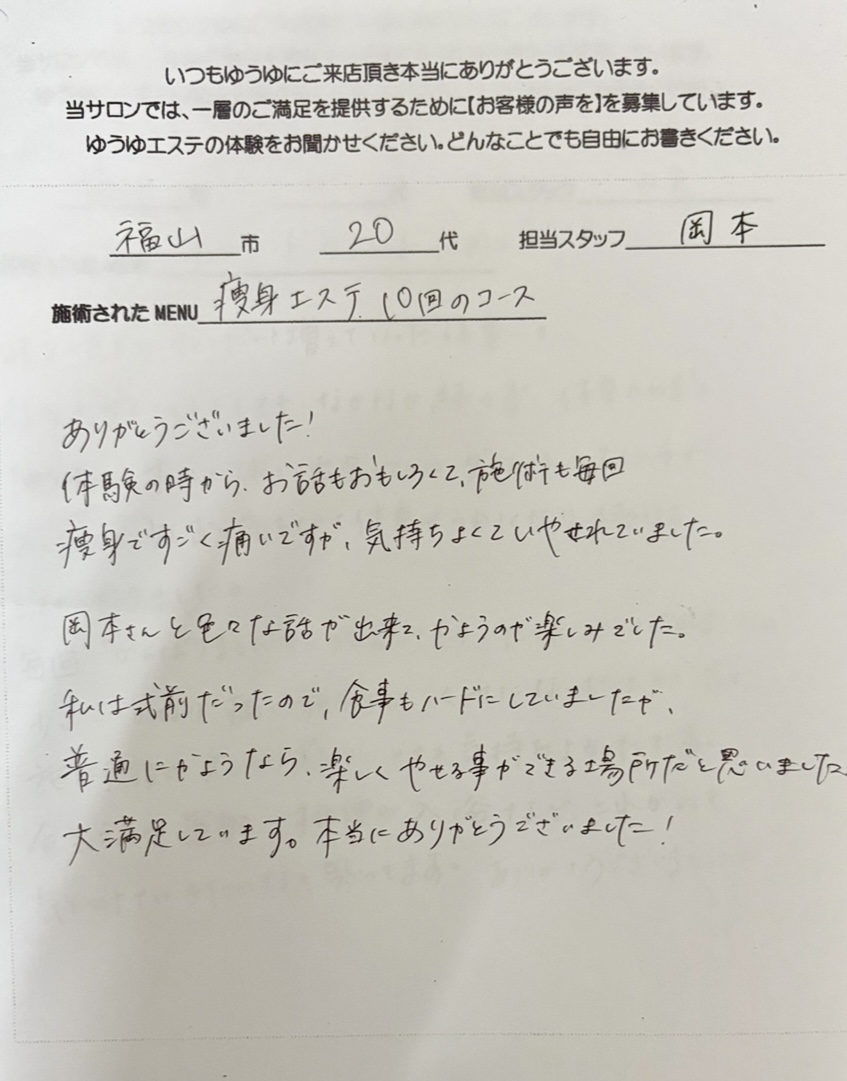 いつもゆうゆにご来店頂き本当にありがとうございます。
当サロンでは、一層のご満足を提供するために【お客様の声を】を募集しています。
ゆうゆエステの体験をお聞かせください。どんなことでも自由にお書きください。
福山 市 20 代 担当スタッフ 岡本
施術されたMENU 痩身エステ 10回のコース
ありがとうございました!
体験の時から、お話もおもしろくて、施術も毎回
痩身ですごく痛いですが、気持ちよくていやせれていました。
岡本さんと色々な話が出来て、かようのが楽しみでした。
私は式前だったので、食事もハードにしていましたが、
普通にかようなら、楽しくやせる事ができる場所だと思いました
大満足しています。本当にありがとうございました!